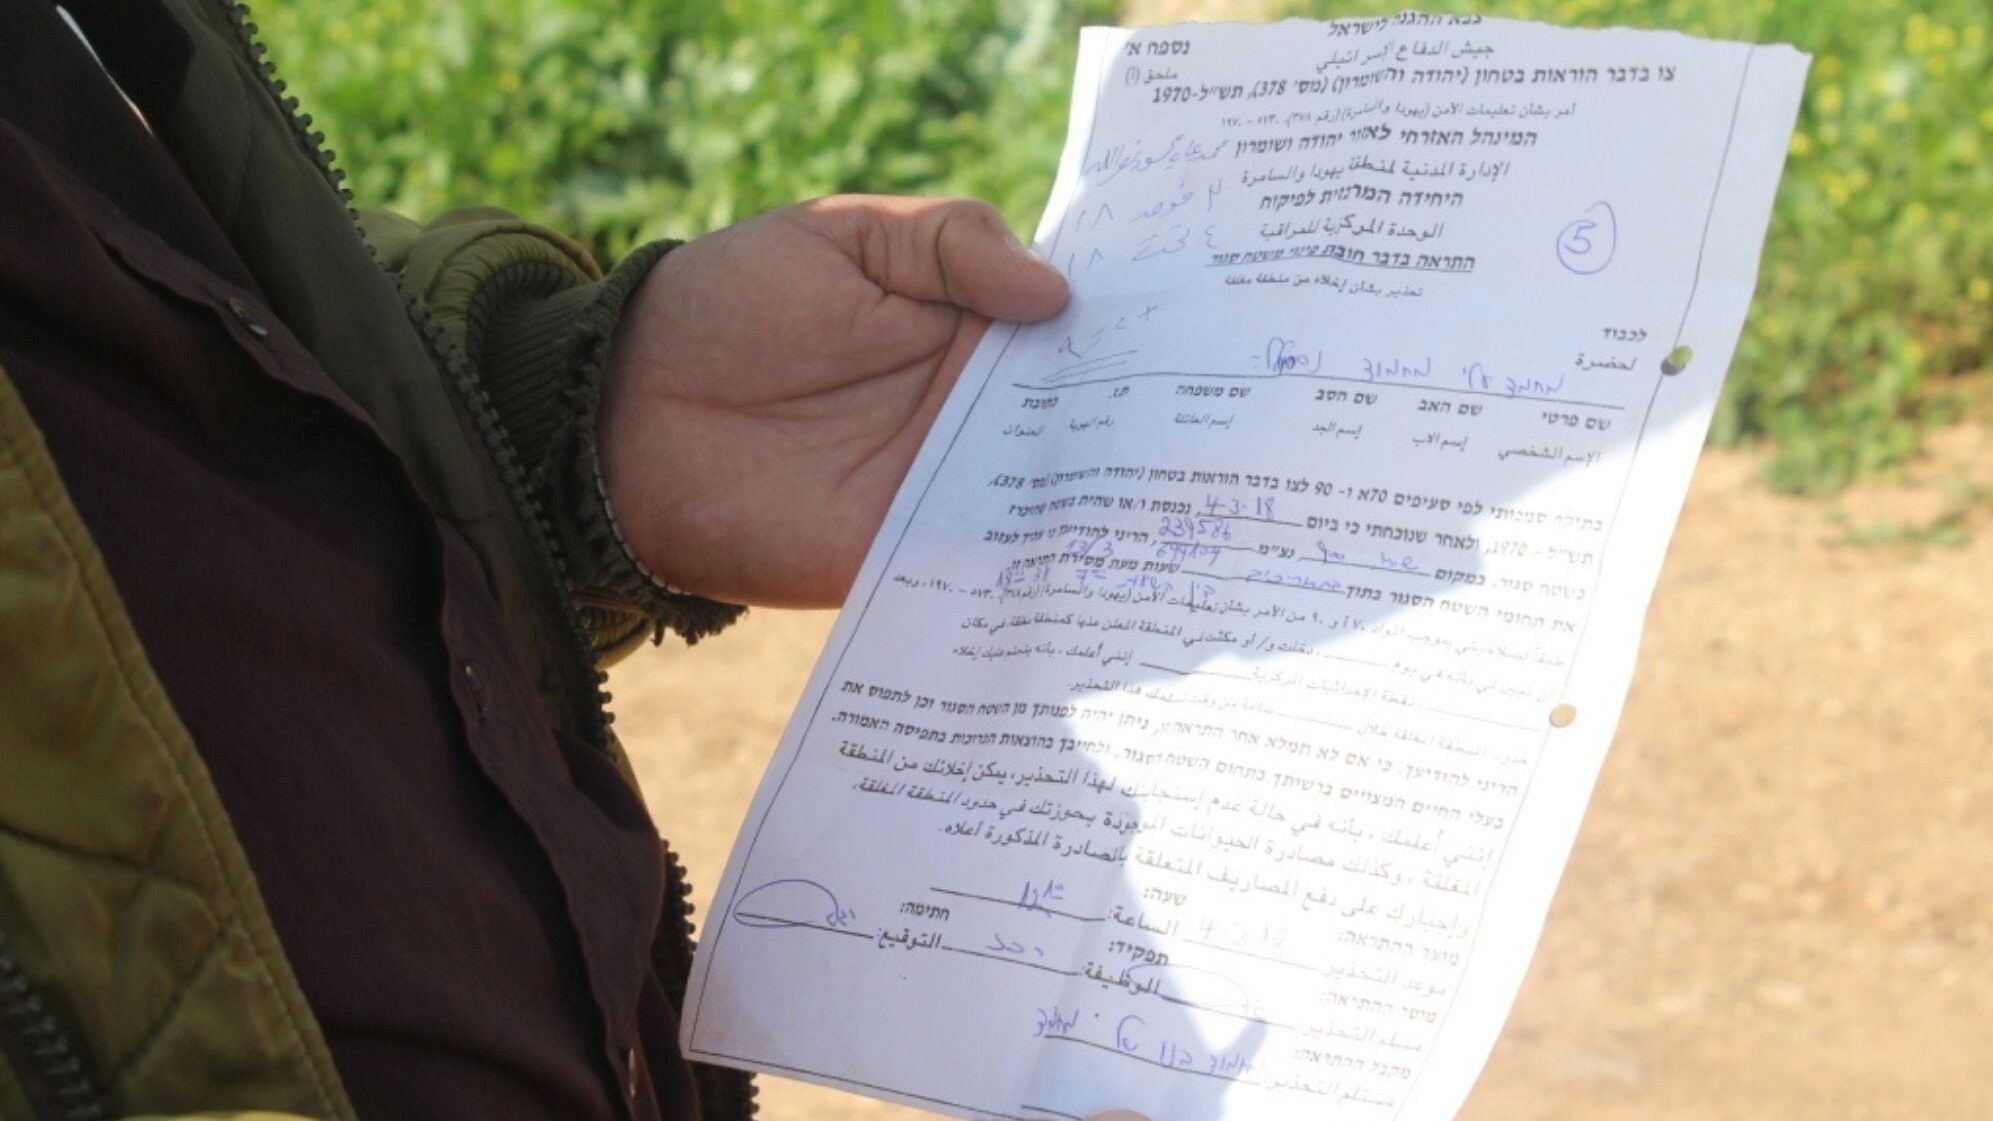 צבא ההגנה לישראל
נספח א'
جيش الدفاع الإسرائيلي
ملحق (أ)
צו בדבר הוראות בטחון (יהודה והשומרון) (מס' 378), תש"ל-1970
أمر بشأن تعليمات الأمن (يهودا والسامرة) (رقم ٣٧٨)، ٥٧٣٠ - ١٩٧٠
המינהל האזרחי לאזור יהודה ושומרון
الإدارة المدنية لمنطقة يهودا والسامرة
היחידה המרכזית לפיקוח
الوحدة المركزية للمراقبة
5
התראה בדבר חובת פינוי משטח סגור
تحذير بشأن إخلاء من منطقة مغلقة
לכבוד
لحضرة
מחמד עלי מחמוד
שם פרטי שם האב שם הסב שם משפחה ת.ז. כתובת
الإسم الشخصي إسم الاب إسم الجد إسم العائلة رقم الهوية العنوان
בתוקף סמכותי לפי סעיפים 70א ו- 90 לצו בדבר הוראות בטחון (יהודה והשומרון) (מס' 378),
תש"ל - 1970, ולאחר שנוכחתי כי ביום 4-3-18 נכנסת ו/או שהית בשטח שהוכרז
כשטח סגור, במקום נצ"מ 239586 699104, הריני להודיעך כי עליך לעזוב
את תחומי השטח הסגור בתוך שעות מעת מסירת התראה זו.
13/3
من الأمر بشأن تعليمات الأمن (يهودا والسامرة) (رقم ٣٧٨)، ٥٧٣٠ - ١٩٧٠، وبعد
أن تبين لي بأنه في يوم ، دخلت و/أو مكثت في المنطقة المعلن عنها كمنطقة مغلقة، في مكان
نقطة الإحداثيات المركزية إنني أعلمك، بأنه يتحتم عليك إخلاء
حدود المنطقة المغلقة خلال ساعة من وقت هذا التحذير.
הריני להודיעך, כי אם לא תמלא אחר התראה זו, ניתן יהיה לפנותך מן השטח הסגור וכן לתפוס את
בעלי החיים המצויים ברשותך בתחום השטח הסגור, ולחייבך בהוצאות הכרוכות בתפיסה האמורה.
إنني أعلمك، بأنه في حالة عدم إستجابتك لهذا التحذير، يمكن إخلائك من المنطقة
المغلقة، وكذلك مصادرة الحيوانات الموجودة بحوزتك في حدود المنطقة المغلقة،
وإجبارك على دفع المصاريف المتعلقة بالمصادرة المذكورة أعلاه.
מועד ההתראה: שעה:
موعد التحذير 4-3-18 الساعة:
מוסר ההתראה: תפקיד: חתימה:
مسلم التحذير الوظيفة: التوقيع:
מקבל ההתראה:
مستلم التحذير